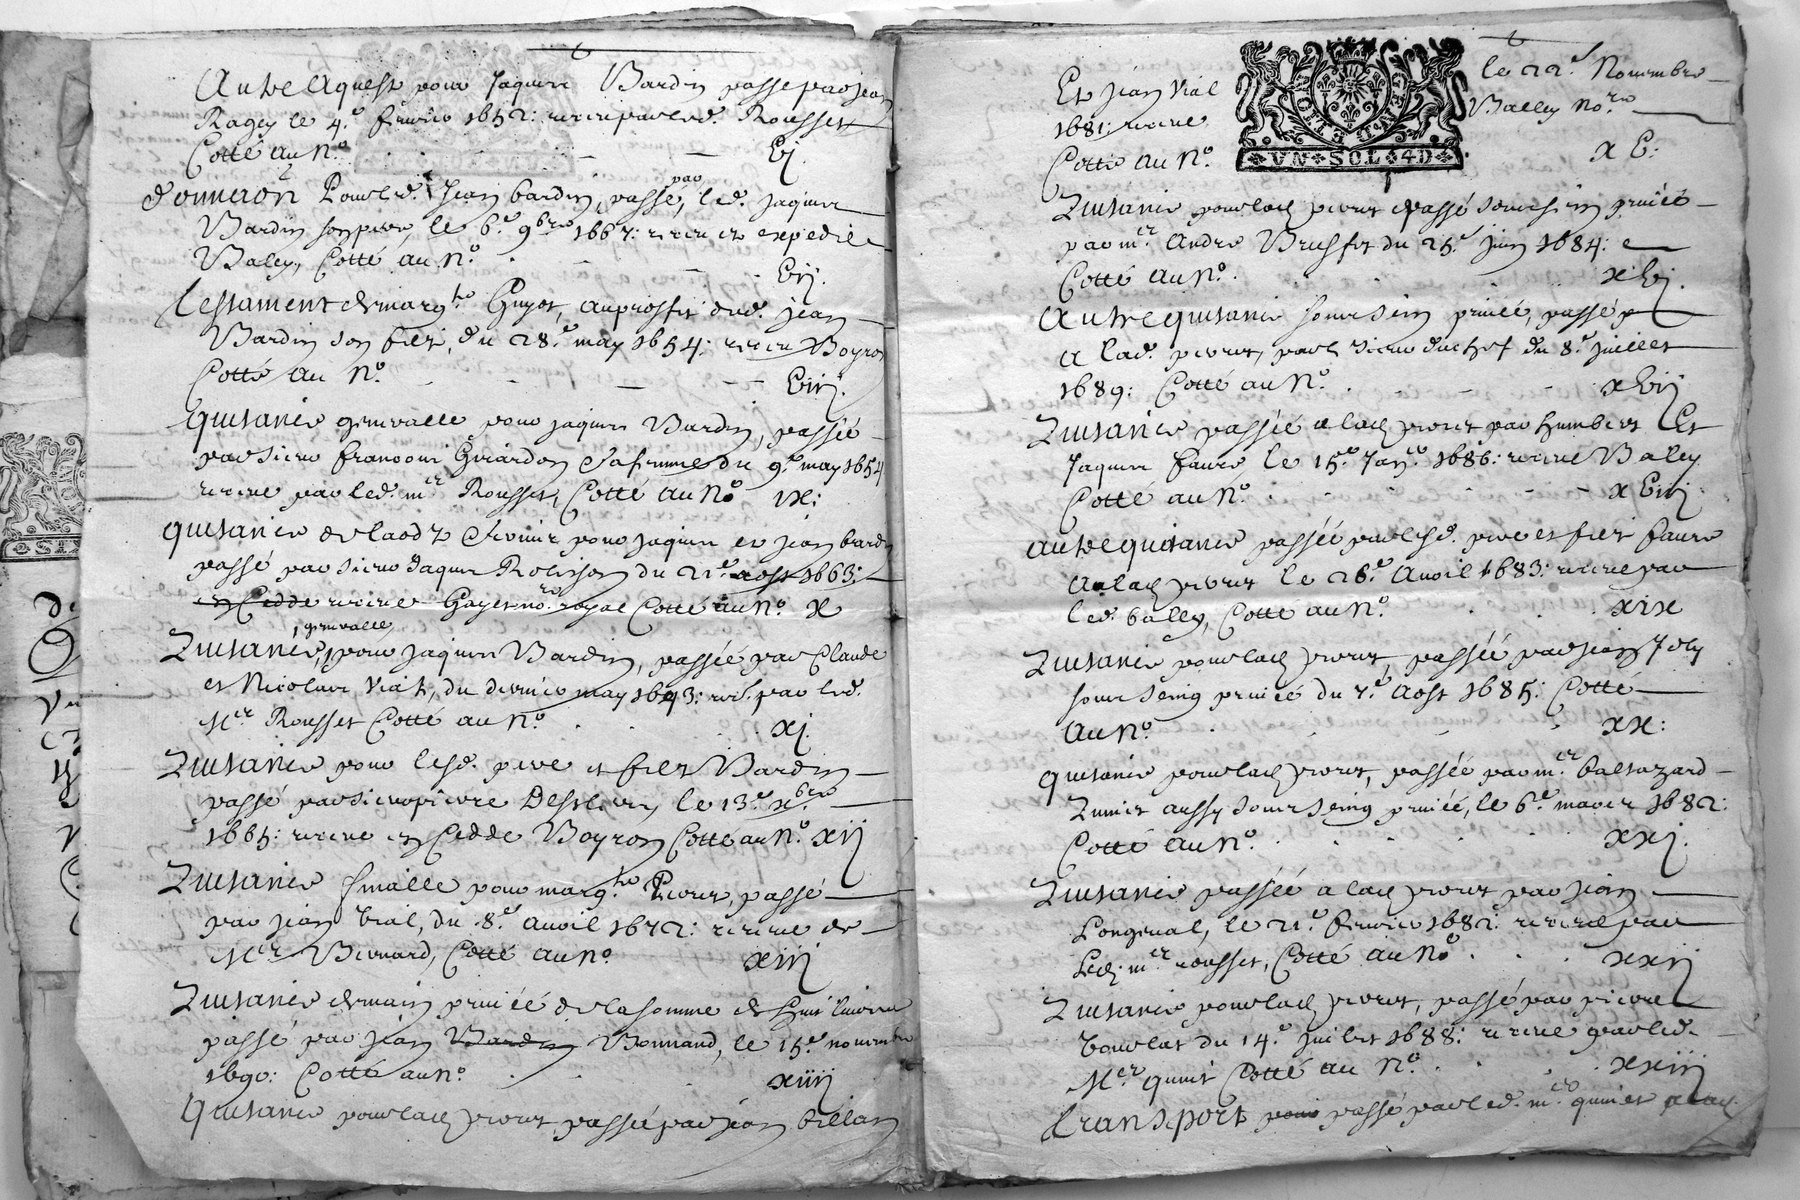 Autre Aquest pour Jaques Bardin passé par Jean
Ragey le 4.e febvrier 1652: receu par led. Rousset
Cotté au No. vj.
Donnation Pour led. Jean bardin, passé, par led. Jaques
Bardin son pere, le 6.e 9bre 1667: receu et expedié
Baley, Cotté au No. vij.
Testament de marg.te Guyot, au proffit dud. Jean
Bardin son filz, du 28.e may 1654: receu Boyron
Cotté au No. viij.
Quitance generalle pour Jaques Bardin, passée
par sieur francois Girardon & sa femme du 9.e may 1654
receue par led. m.e Rousset, Cotté au No. ix:
Quitance de laodz pour Jaques et Jean bardin
passé par sieur Jaques du 21.e aost 1663:
receue Gayet no.re royal Cotté au No. x
Quitance, generalle, pour Jaques Bardin, passée par Claude
et Nicolas Vial, du dernier may 1643: rec. par led.
M.er Rousset Cotté au No. xj.
Quitance pour lesd. pere et filz Bardin
passé par sieur pierre le 13.e xbre
1665: receue Boyron Cotté au No. xij
Quitance finalle pour marg.te Pivout, passé
par Jean Vial, du 8.e Avril 1672: receue de
M.er Bernard, Cotté au No. xiij
Quitance de main privée de la somme de huit livres
passé par Jean Bardin Bonnand, le 15.e novembre
1690: Cotté au No. xiiij
Quitance pour lad. pivout passée par Jean billan
Et Jean Vial le 22.e Novembre
1681: receue Balley No.re
Cotté au No. xv:
UN SOL 4D
Quitance pour lad. pivout passé soub sein privée
par m.er André Brusset du 25.e Juin 1684:
Cotté au No. xvj.
Autre quitance soubz sein privée, passée
a lad. pivout, par sieur duchet du 8.e Juillet
1689: Cotté au No. xvij
Quitance passée a lad. pivout par humbert Et
Jaques faure le 15.e Janer 1686: receue Baley
Cotté au No. xviij
Autre quitance passée par lesd. pere et filz faure
A lad. pivout le 26.e Avril 1683: receue par
led. balley, Cotté au No. xix
Quitance pour lad. pivout, passée par Jean Joly
soubz seing privée du 7.e Aost 1685: Cotté
Au No. xx:
Quitance pour lad. pivout, passée par m.er baltazard
Quinet aussy soubz seing privée, le 6.e mars 1682:
Cotté au No. xxj.
Quitance passée a lad. pivout par Jean
Longeval, le 21.e febvrier 1682: receue par
Led. m.er rousset, Cotté au No. xxij
Quitance pour lad. pivout, passé par pierre
le 14.e Juillet 1688: receue par led.
M.er quinet Cotté au No. xxiij
Transport pour passé par led. m.er quinet a lad.